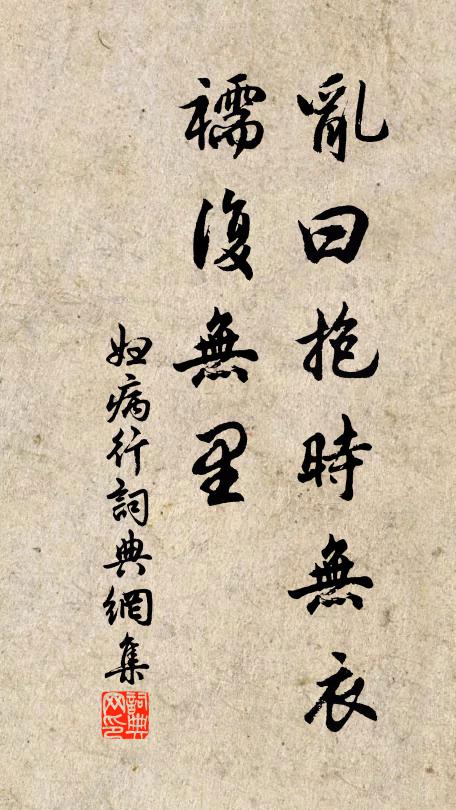 亂曰抱時無衣
襦復無里
婦病行詞典網集
詞典网印